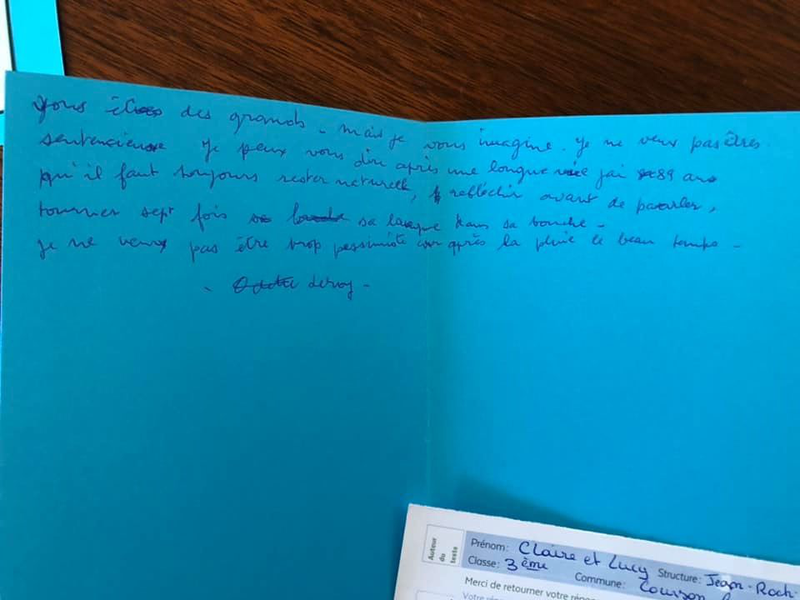 Vous êtes des grands - mais je vous imagine. Je ne veux pas êtres
sentencieuse Je peux vous dire après une longue vie j'ai 89 ans
qu'il faut toujours rester naturelle, réfléchir avant de parler,
tourner sept fois sa langue dans sa bouche -
Je ne veux pas être trop pessimiste car après la pluie le beau temps -
- Leroy -
Auteur du texte
Prénom: Claire et Lucy Structure: Jean-Roch
Classe: 3ème Commune: Courzon
Merci de retourner votre